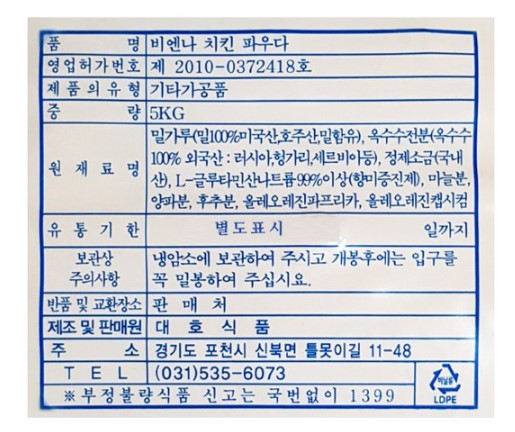 품 명 비엔나 치킨 파우다
영업허가번호 제 2010-0372418호
제품의유형 기타가공품
중 량 5KG
원 재 료 명 밀가루(밀100%미국산,호주산,밀함유), 옥수수전분(옥수수
100% 외국산 : 러시아,헝가리,세르비아등), 정제소금(국내
산), L-글루타민산나트륨99%이상(향미증진제), 마늘분,
양파분, 후추분, 올레오레진파프리카, 올레오레진캡시컴
유 통 기 한 별도표시 일까지
보관상 주의사항 냉암소에 보관하여 주시고 개봉후에는 입구를
꼭 밀봉하여 주십시요.
반품 및 교환장소 판 매 처
제조 및 판매원 대 호 식 품
주 소 경기도 포천시 신북면 틀못이길 11-48
T E L (031)535-6073
※부정불량식품 신고는 국번없이 1399
비닐류
LDPE